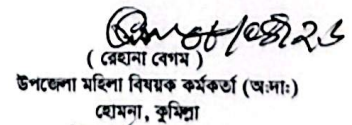 ( রেহানা বেগম )
উপজেলা মহিলা বিষয়ক কর্মকর্তা (অ:দা:)
হোমনা, কুমিল্লা